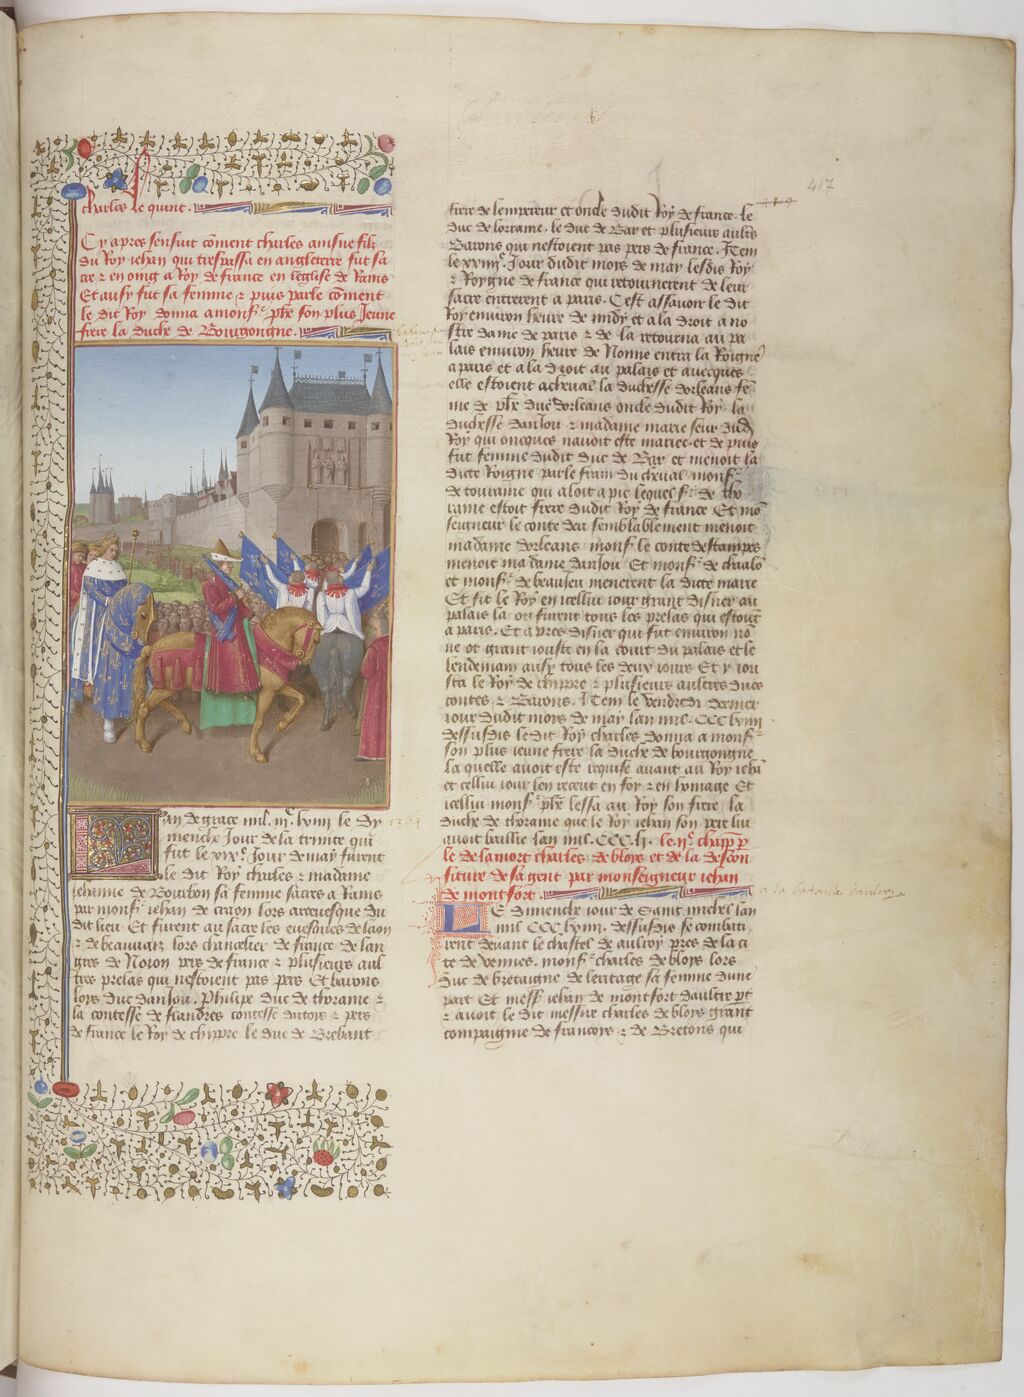 417
Charles le quint.
Cy apres sensuit cōment charles aisne filz
du Roy iehan qui trespassa en angleterre fut sa
cre ⁊ en oing a Roy de france en leglise de Rains
Et ausy fut sa femme ⁊ puis parle cōment
le dit Roy donna a monsr phē son plus Jeune
frere la duche de Bourgongne.
an de grace mil. iijc lxiiij le dy
menche Jour de la trinite qui
fut le xixe Jour de may furent
le dit Roy charles ⁊ madame
iehanne de Bourbon sa femme sacres a Rains
par monsr iehan de craon lors arcevesque du
dit lieu Et furent au sacre les evesques de laon
⁊ de beauvaiz lors chancelier de france de lan
gres de Noion pers de france ⁊ plusieurs aul
tres prelas qui nestoient pas pers Et barons
loys duc danjou. Philipe duc de thoraine ⁊
la contesse de flandres contesse dartoys ⁊ pers
de france le Roy de chippre le duc de Brebant
frere de lempereur et oncle dudit Roy de france. le
duc de lorraine. le duc de Bar et plusieurs aultrs
Barons qui nestoient pas pers de france. Item
le xxiiije. Jour dudit mois de may lesdis Roy
⁊ Roygne de france qui retournerent de leur
sacre entrerent a paris. Cest assavoir le dit
Roy environ heure de midy et ala droit a no
stre dame de paris ⁊ de la retourna au pa
lais environ heure de Nonne entra la Roigne
a paris et ala droit au palais et avecques
elle estoient acheval la duchesse dorleans fē
me de phē duc dorleans oncle dudit Roy. la
duchesse danjou ⁊ madame marie seur dud
Roy qui oncques navoit este mariee. et de puis
fut femme dudit duc de Bar et menoit la
dicte Roigne par le frain du cheval monsr
de touraine qui aloit a pie lequel sr de tho
raine estoit frere dudit Roy de france Et mō
seigneur le conte deu semblablement menoit
madame dorleans monsr le conte destampes
menoit ma dame danjou Et monsr de chaalō
et monsr de beaujeu menerent la dicte marie
Et fit le Roy en icellui iour grant disner au
palais la ou furent tous les prelas qui estoiēt
a paris. Et apres disner qui fut environ no
ne ot grant iouste en la court du palais et le
lendemain ausy tous les deux iours Et y iou
sta le Roy de chippre ⁊ plusieurs aultres ducs
contes ⁊ Barons. Item le vendredi dernier
iour dudit mois de may lan mil. CCC lxiiij
dessusdis le dit Roy charles donna a monsr
son plus ieune frere la duche de bourgongne
la quelle avoit este requise avant au Roy iehā
et cellui iour len recent en foy ⁊ en homage Et
icellui monsr phē lessa au Roy son frere la
duche de thoraine que le Roy iehan son pere lui
avoit baillie lan mil. CCC. lx. le ije. chapp̄ p
le de la mort charles de bloys et de la descon
fiture de sa gent par monseigneur iehan
de montfort.
LE dimenche iour de saint michel lan
mil CCC lxiiij. dessusdis se combati
rent devant le chastel de aulroy pres de la ci
te de vennes. monsr charles de bloys lors
duc de bretaigne de leritage sa femme dune
part Et messr iehan de montfort daultre pt
⁊ avoit le dit messire charles de bloys grant
compaignie de francoys ⁊ de Bretons qui